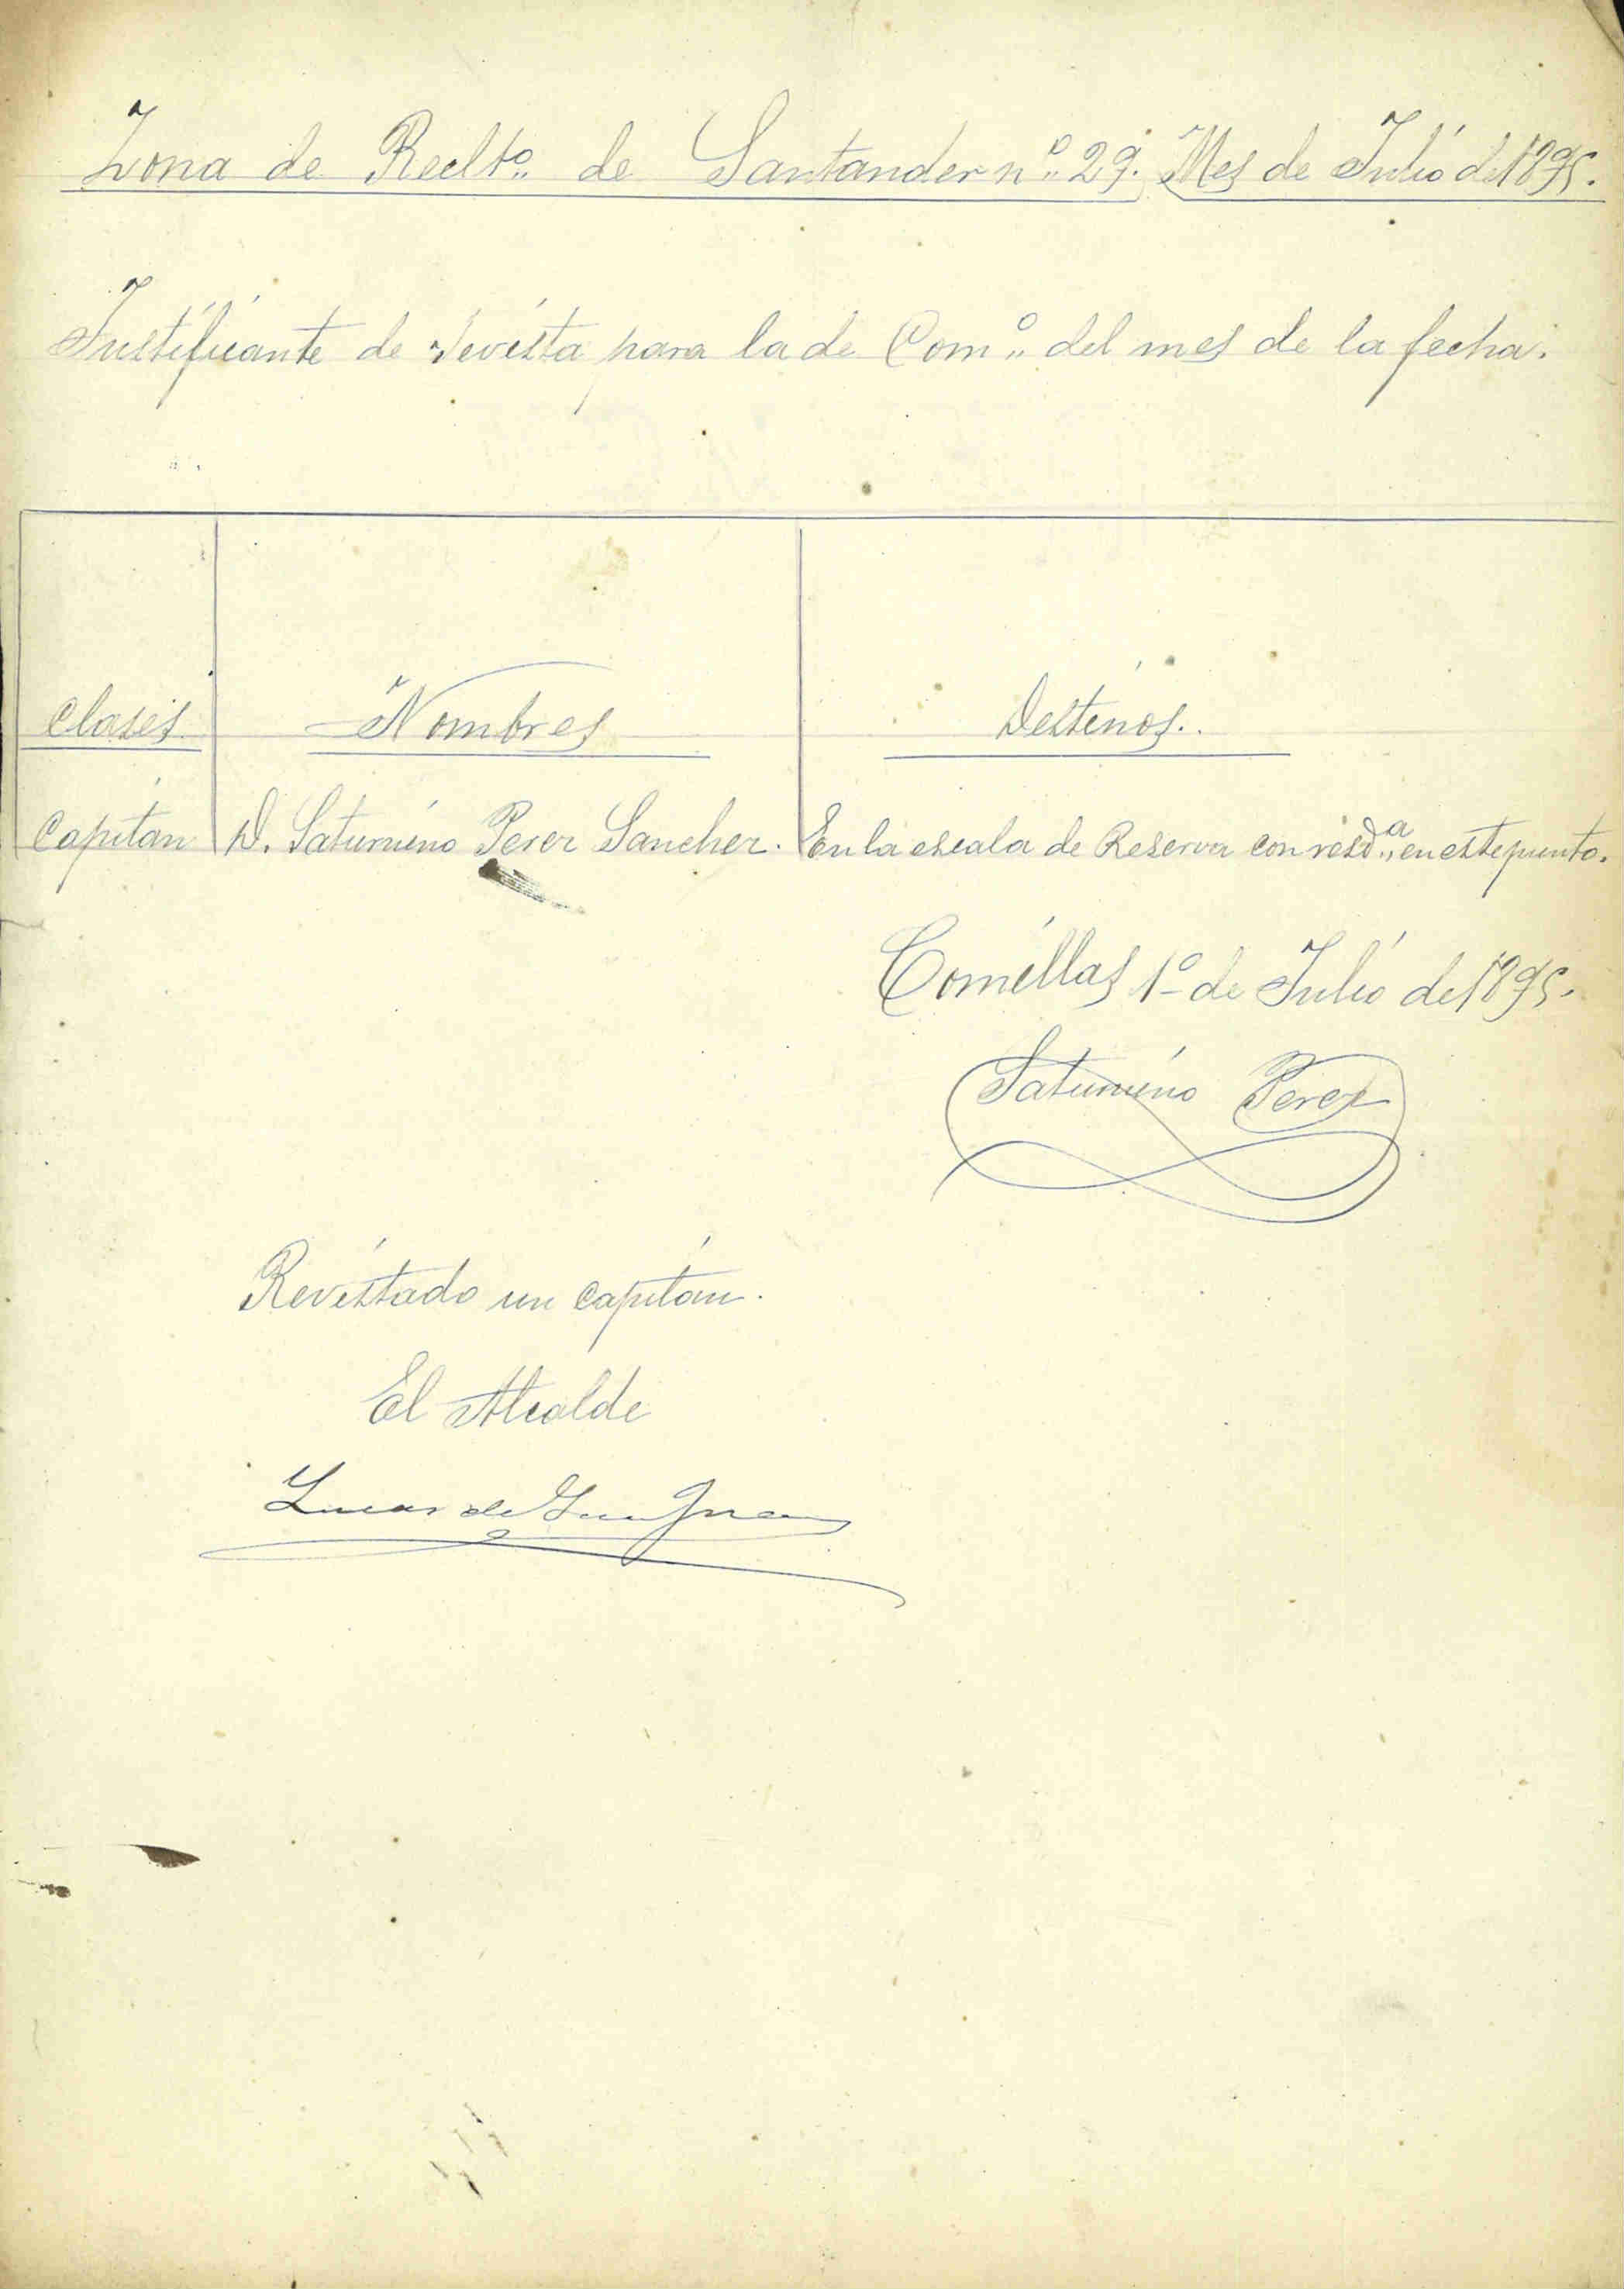 Zona de Reclto. de Santander nº 29. Mes de Julio de 1895.
Justificante de revista para la de Comº del mes de la fecha.
Clases Nombres Destinos.
Capitan D. Saturnino Perez Sanchez. En la escala de Reserva con residª en este punto.
Comillas 1º de Julio de 1895.
Saturnino Perez
Revistado un capitan.
El Alcalde
Lucas de